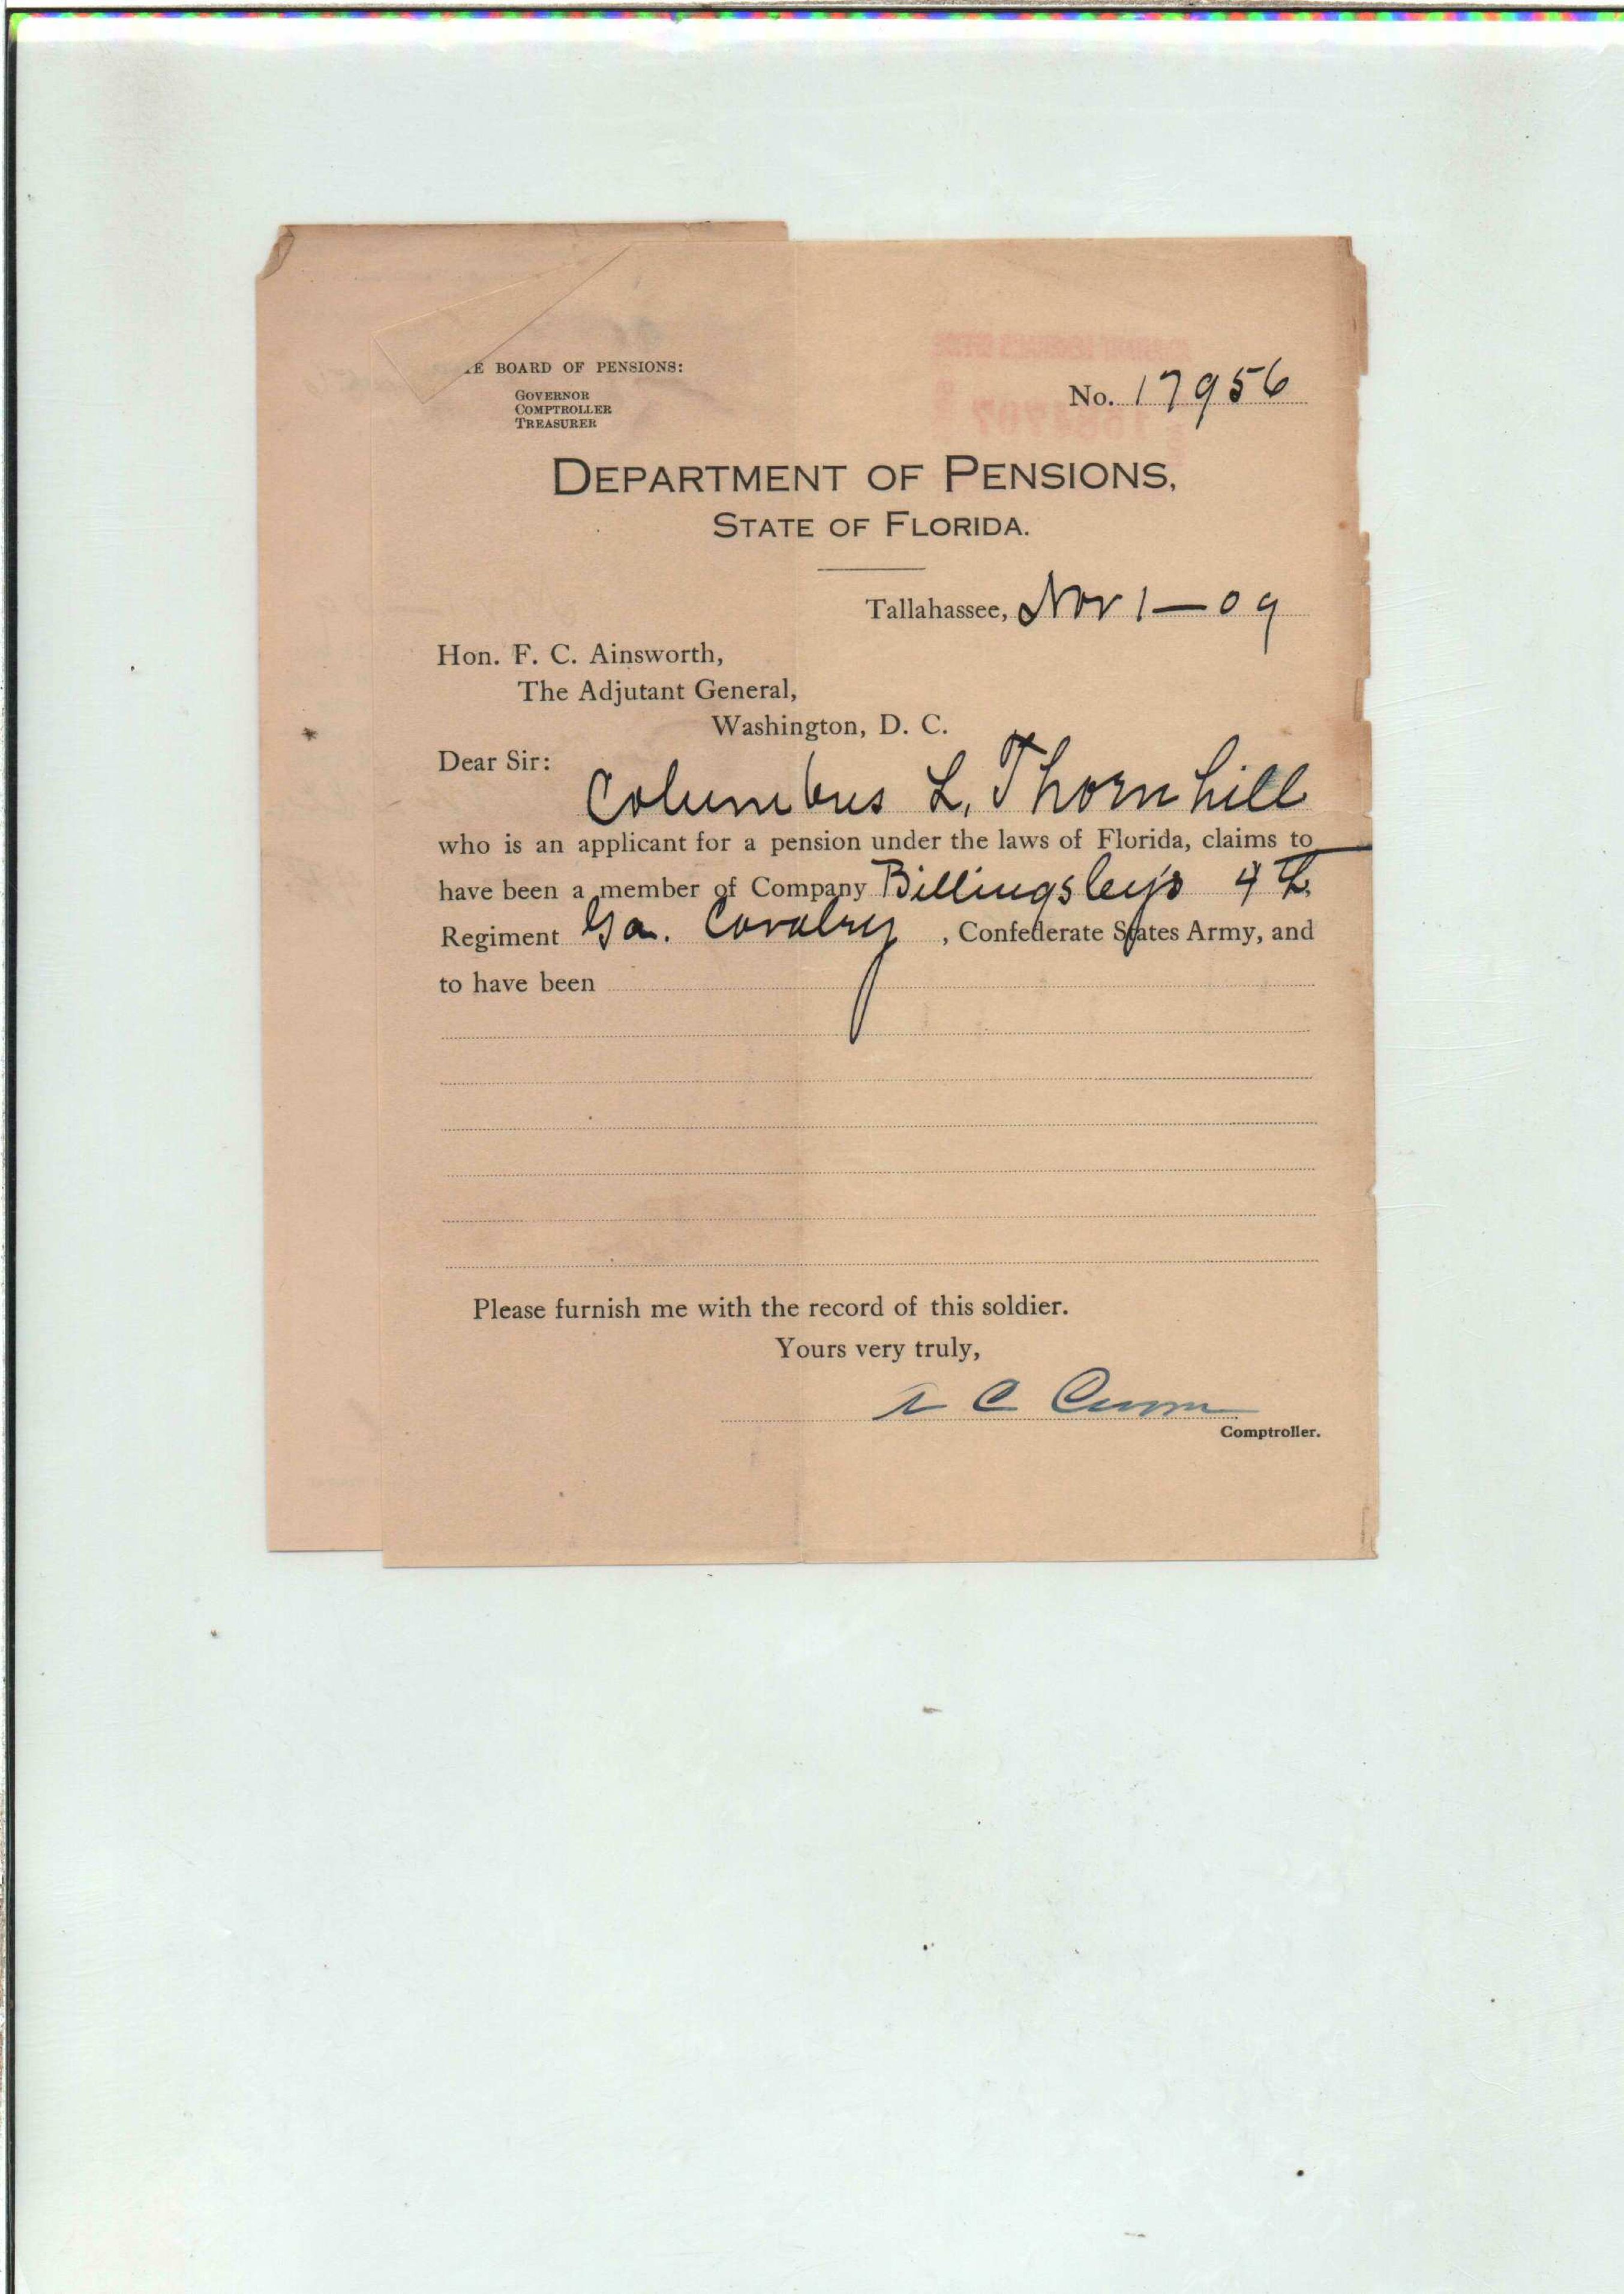 E BOARD OF PENSIONS:
GOVERNOR
COMPTROLLER
TREASURER
No. 17956
DEPARTMENT OF PENSIONS,
STATE OF FLORIDA.
Tallahassee, Nov 1—09
Hon. F. C. Ainsworth,
The Adjutant General,
Washington, D. C.
Dear Sir:
Columbus L. Thornhill
who is an applicant for a pension under the laws of Florida, claims to
have been a member of Company Billingsley's 4th
Regiment Ga. Cavalry, Confederate States Army, and
to have been
Please furnish me with the record of this soldier.
Yours very truly,
A C Croom
Comptroller.